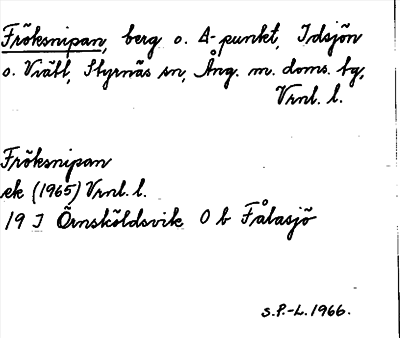 Fröksnipan, berg o. A-punkt, Idsjön
o. Vrätt, Styrnäs sn, Ång. m. doms. bg,
Vrnl. l.
Fröksnipan
ek (1965) Vrnl. l.
19 J Örnsköldsvik O b Fålasjö
S.P.-L. 1966.